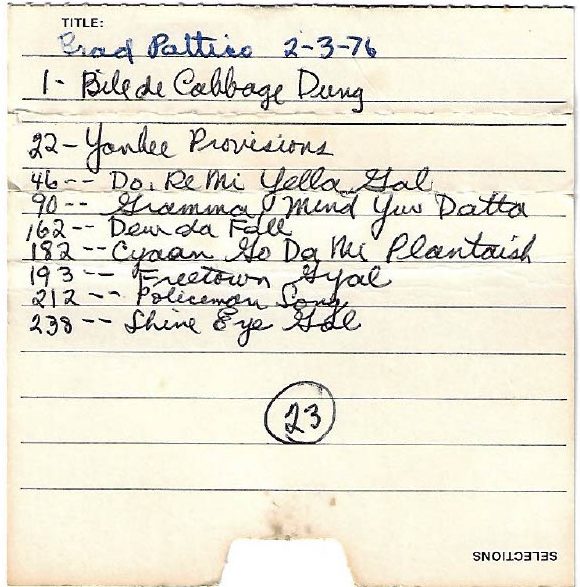 TITLE:
Brad Pattico 2-3-76
1- Bile de Cabbage Dung
22- Yankee Provisions
46-- Do. Re Mi Yella Gal
90-- Gramma, Mind Yuv Datta
162-- Dew da Fall
182-- Cyaan Go Da Mi Plantaish
193-- Freetown Gyal
212-- Policeman Song
238-- Shine Eye Gal
23
SELECTIONS